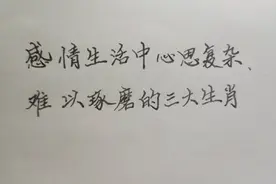 感情生活中心思复杂、
难以琢磨的三大生肖